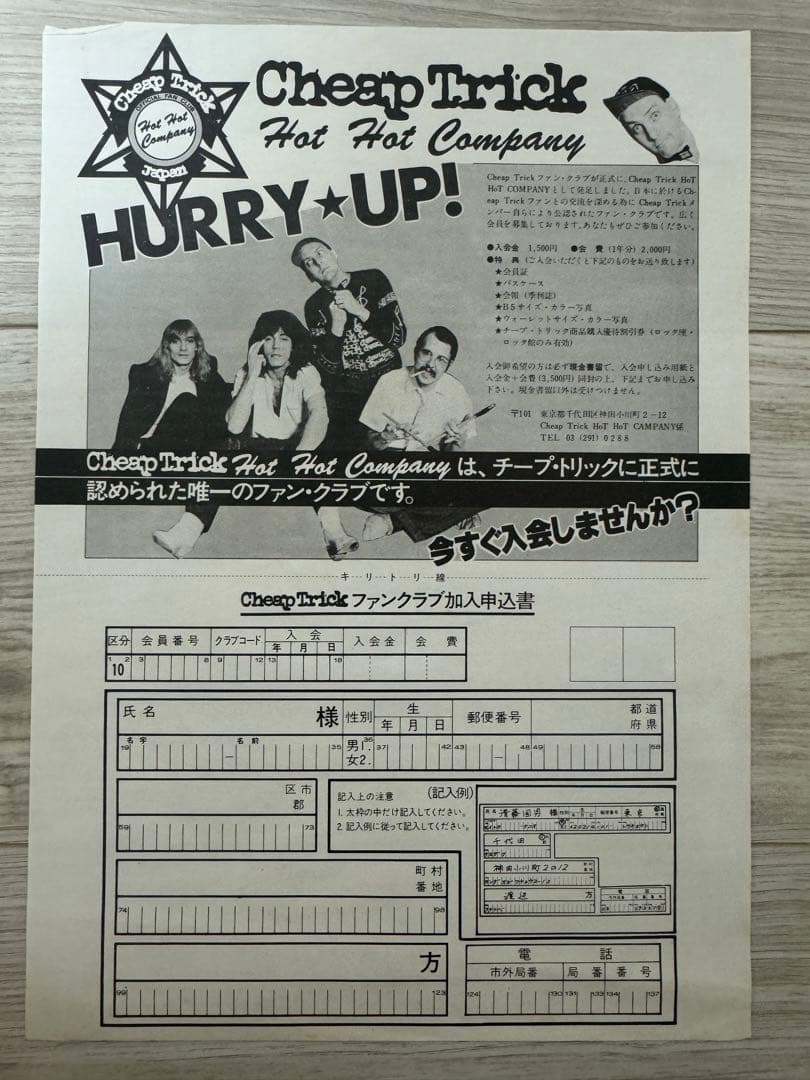 Cheap Trick
OFFICIAL FAN CLUB
Hot Hot
Company
Japan
Cheap Trick
Hot Hot Company
HURRY★UP!
Cheap Trickファン・クラブが正式に、Cheap Trick HoT
HoT COMPANYとして発足しました。日本に於けるCh-
eap Trickファンとの交流を深める為に Cheap Trickメ
ンバー自らにより公認されたファン・クラブです。広く
会員を募集しております。あなたもぜひご参加ください。
●入会金 1,500円 ●会 費 (1年分) 2,000円
●特 典 (ご入会いただくと下記のものをお送り致します)
★会員証
★パスケース
★会報 (季刊誌)
★B5サイズ・カラー写真
★ウォーレットサイズ・カラー写真
★チープ・トリック商品購入優待割引券 (ロック座・
ロック館のみ有効)
入会御希望の方は必ず現金書留で、入会申し込み用紙と
入会金+会費 (3,500円) 同封の上、下記までお申し込み
下さい。現金書留以外は受けつけません。
〒101 東京都千代田区神田小川町2-12
Cheap Trick HoT HoT CAMPANY係
TEL 03 (291) 0288
Cheap Trick Hot Hot Company は、チープ・トリックに正式に
認められた唯一のファン・クラブです。
今すぐ入会しませんか?
キ・・・リ・・・ト・・・リ・・・線
Cheap Trick ファンクラブ加入申込書
区分 会員番号 クラブコード 入会 年 月 日 入会金 会費
1 2 3 8 9 12 13 18
10
氏名 様 性別 生 年 月 日 郵便番号 都道府県
名字 名前
19 35 36 37 42 43 48 49 58
男1.
女2.
区市
郡
59 73
記入上の注意 (記入例)
1. 太枠の中だけ記入してください。
2. 記入例に従って記入してください。
千代田
神田小川町2の12
渡辺 方
町村
番地
74 98
方
99 123
電話
市外局番 局番 番号
124 130 131 133 134 137